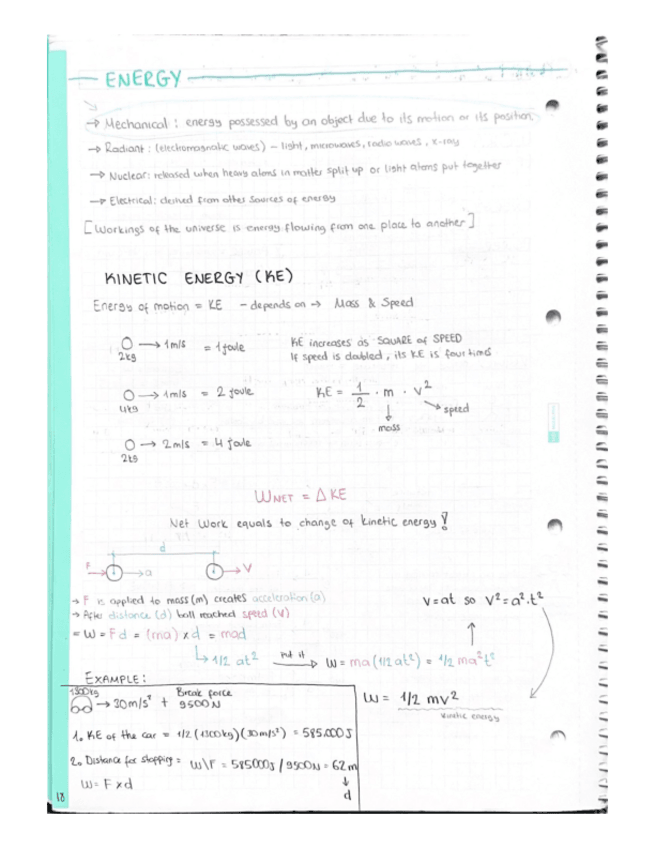 ENERGY
→ Mechanical: energy possessed by an object due to its motion or its position.
→ Radiant: (electromagnatic waves) - light, microwaves, radio waves, x-ray
→ Nuclear: released when heavy atoms in matter split up or light atoms put together
→ Electrical: derived from other sources of energy
[Workings of the universe is energy flowing from one place to another]
KINETIC ENERGY (KE)
Energy of motion = KE - depends on → Mass & Speed
→ 1m/s = 1 joule
2kg
KE increases as SQUARE of SPEED
If speed is doubled, its KE is four times
→ 1m/s = 2 joule
4kg
KE = 1/2 · m · v²
mass
speed
→ 2m/s = 4 joule
2kg
WNET = Δ KE
Net Work equals to change of kinetic energy!
d
F → a → V
→ F is applied to mass (m) creates acceleration (a)
→ After distance (d) ball reached speed (v)
= W = Fd = (ma) x d = mad
↳ 1/2 at² put it → W = ma (1/2 at²) = 1/2 ma²t²
V = at so V² = a².t²
W = 1/2 mv²
kinetic energy
EXAMPLE:
1300kg
→ 30m/s² + Break force 9500N
1. KE of the car = 1/2 (1300kg)(30m/s²) = 585.000J
2. Distance for stopping = W\F = 585000J / 9500N = 62m
W = F x d
d
18